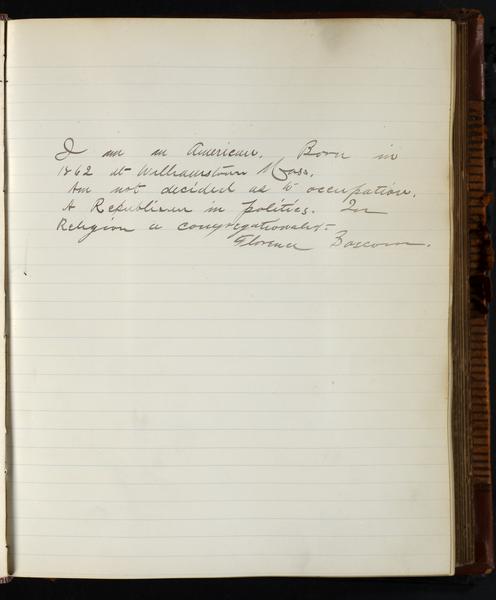 I am an American. Born in
1862 at Williamstown Mass.
Am not decided as to occupation.
A Republican in politics. In
Religion a congregationalist-
Florence Bascom.